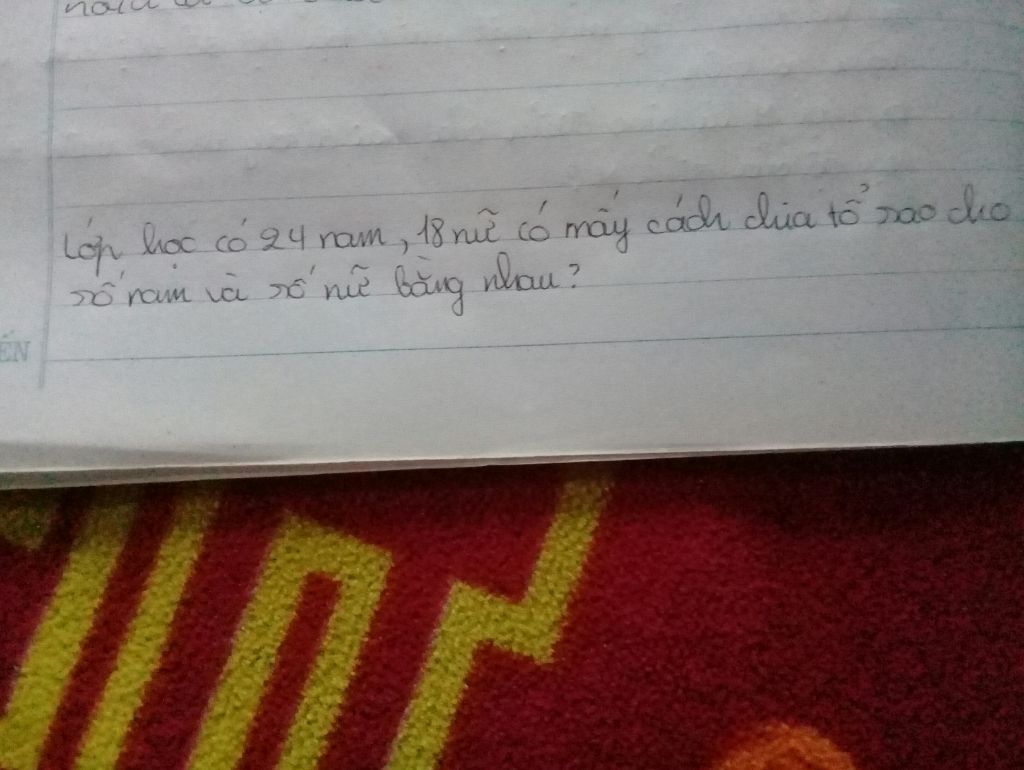 Lớp học có 24 nam, 18 nữ có mấy cách chia tổ sao cho
số nam và số nữ bằng nhau?
ẾN